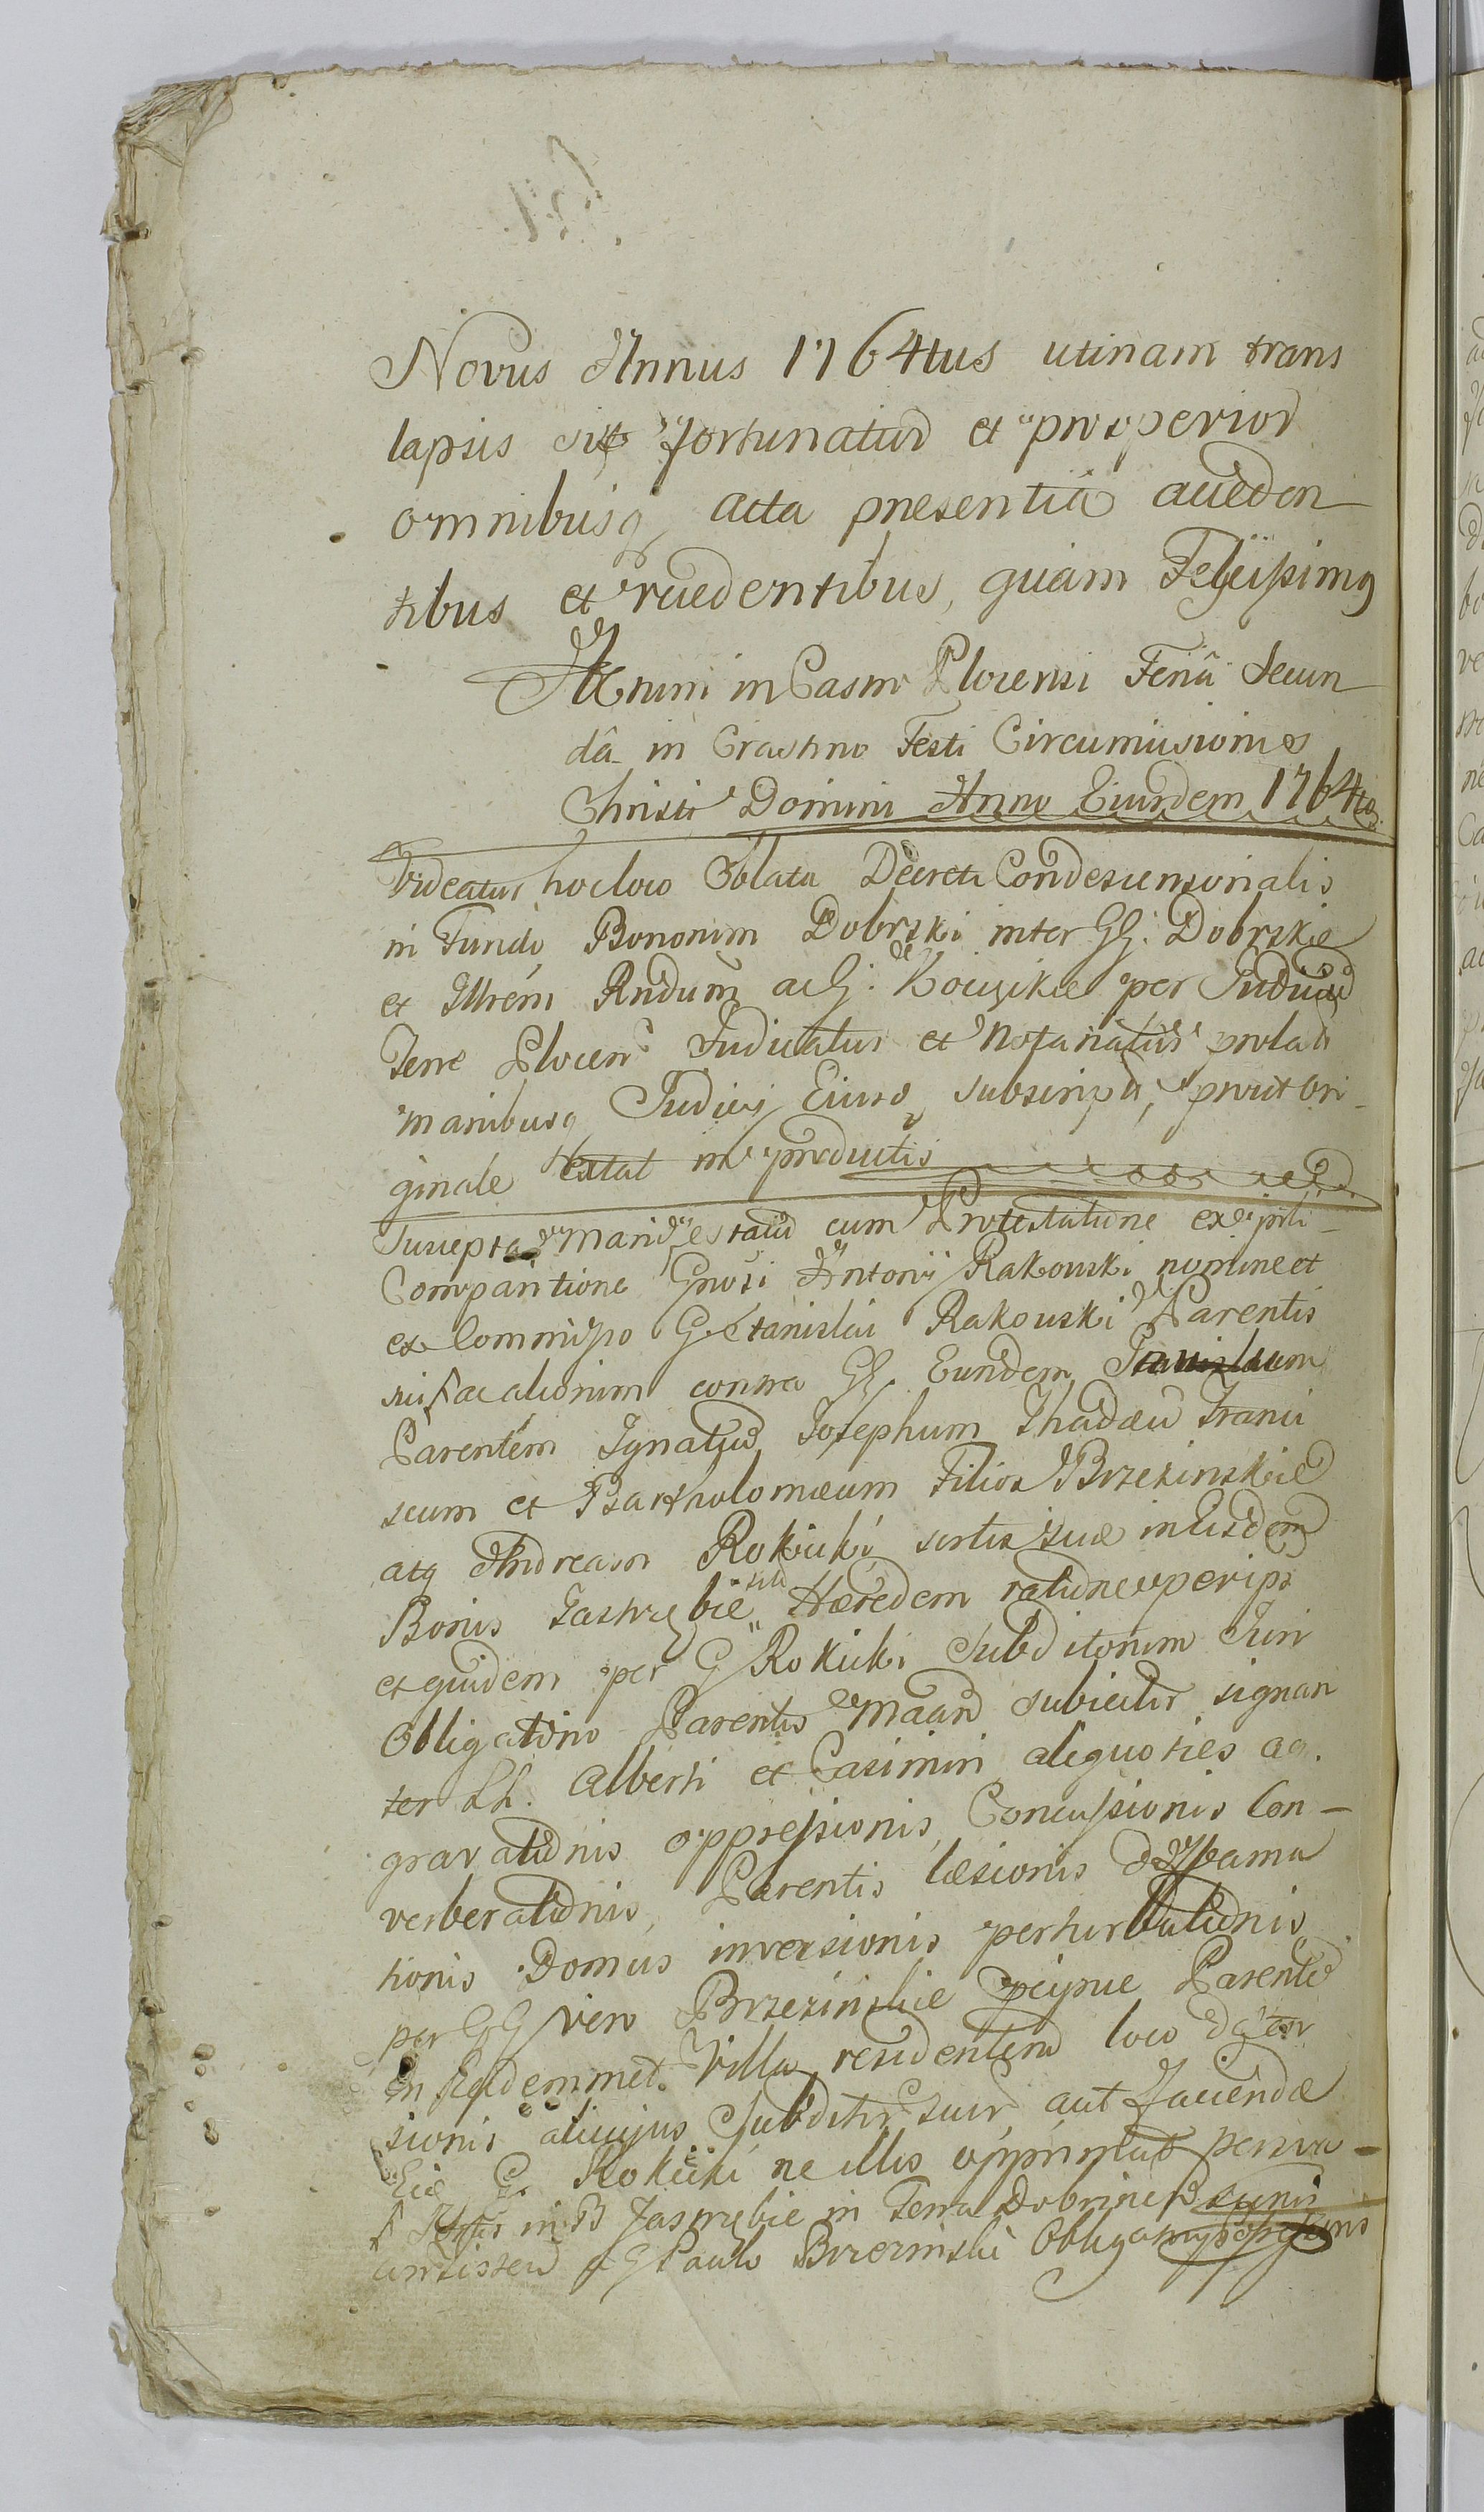 Novus Annus 1764tus utinam trans
lapsis sit fortunatior et prosperior
omnibusq acta presentia acceden
tibus et recedentibus, quam Felicissimg
Actum in Castro Plocensi Feriâ Secun
dâ in Crastino Festi Circumcisionis
Christi Domini Anno Eiusdem 1764to
Videatur hocloco Oblata Decreti Condescensorialis
in Fundo Bonorum Dobrski inter GG. Dobrskie
et Illrem Rndum ac G. de per Judicium
Terre Plocen Judicatus et Notariatus prolati
manibusq Judicij Eiusd subscripti, prout Ori
ginale extat in productis
Suscepta cum Protestatione
Comparitione Gnosi Antonij Rakowski nomine et
ex Commisso G. Stanislai Rakowski Parentis
sui contra GG. Eundem Stanislaum
Parentem Ignatium Josephum Thadæum Franci
scum et Bartholomæum Filios Brzezinskie
atq Andream Rokicki sortis suæ in Eisdem
Bonis Jastrzębie Hæredem ratione per ips
et quidem per G Rokicki Subditorum Juri
Obligatorio Parentis subiector signan
ter LL. Alberti et Casimiri aliquoties ag
gravationis oppressionis, Concussionis Con-
verberationis, Parentis læsionis diffama
tionis Domus inversionis perturbationis
per GG vero Brzezinskie Parente
in Eademmet Villa residentem loco
sionis alicujus Subditis suis aut Faciendæ
G. Rokicki ne illis opprimat
in B Jastrzębie in Terra Dobrinen
G Paulo Brzezinski